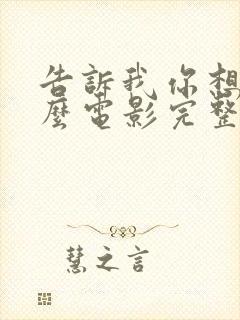 告訴我 你想
麼電影完整
慧之言